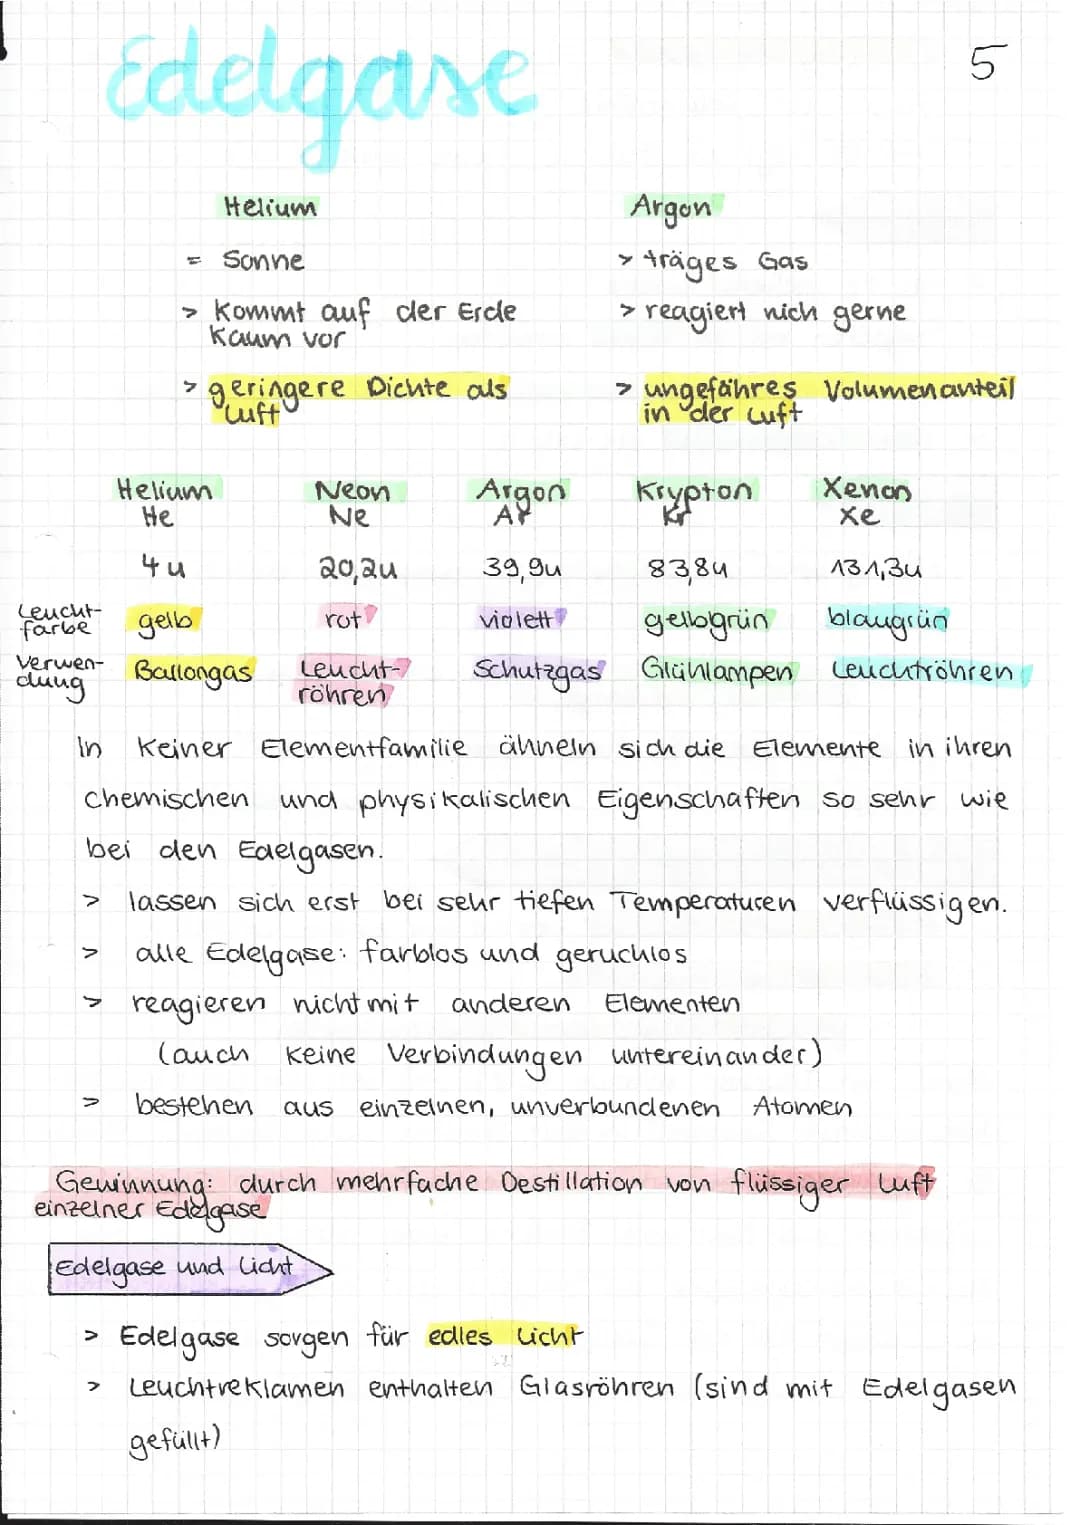 Edelgase
5
Helium
= Sonne
> kommt auf der Erde
kaum vor
> geringere Dichte als
Luft
Argon
> träges Gas
> reagiert nich gerne
> ungefähres Volumenanteil
in der Luft
Helium Neon Argon Krypton Xenon
He Ne Ar Kr Xe
4u 20,2u 39,9u 83,8u 131,3u
Leucht-
farbe gelb rot violett gelbgrün blaugrün
Verwen-
dung Ballongas Leucht-
röhren Schutzgas Glühlampen Leuchtröhren
In keiner Elementfamilie ähneln sich die Elemente in ihren
chemischen und physikalischen Eigenschaften so sehr wie
bei den Edelgasen.
> lassen sich erst bei sehr tiefen Temperaturen verflüssigen.
> alle Edelgase: farblos und geruchlos
> reagieren nicht mit anderen Elementen
(auch keine Verbindungen untereinander)
> bestehen aus einzelnen, unverbundenen Atomen
Gewinnung: durch mehrfache Destillation von flüssiger Luft
einzelner Edelgase
Edelgase und Licht
> Edelgase sorgen für edles Licht
> Leuchtreklamen enthalten Glasröhren (sind mit Edelgasen
gefüllt)